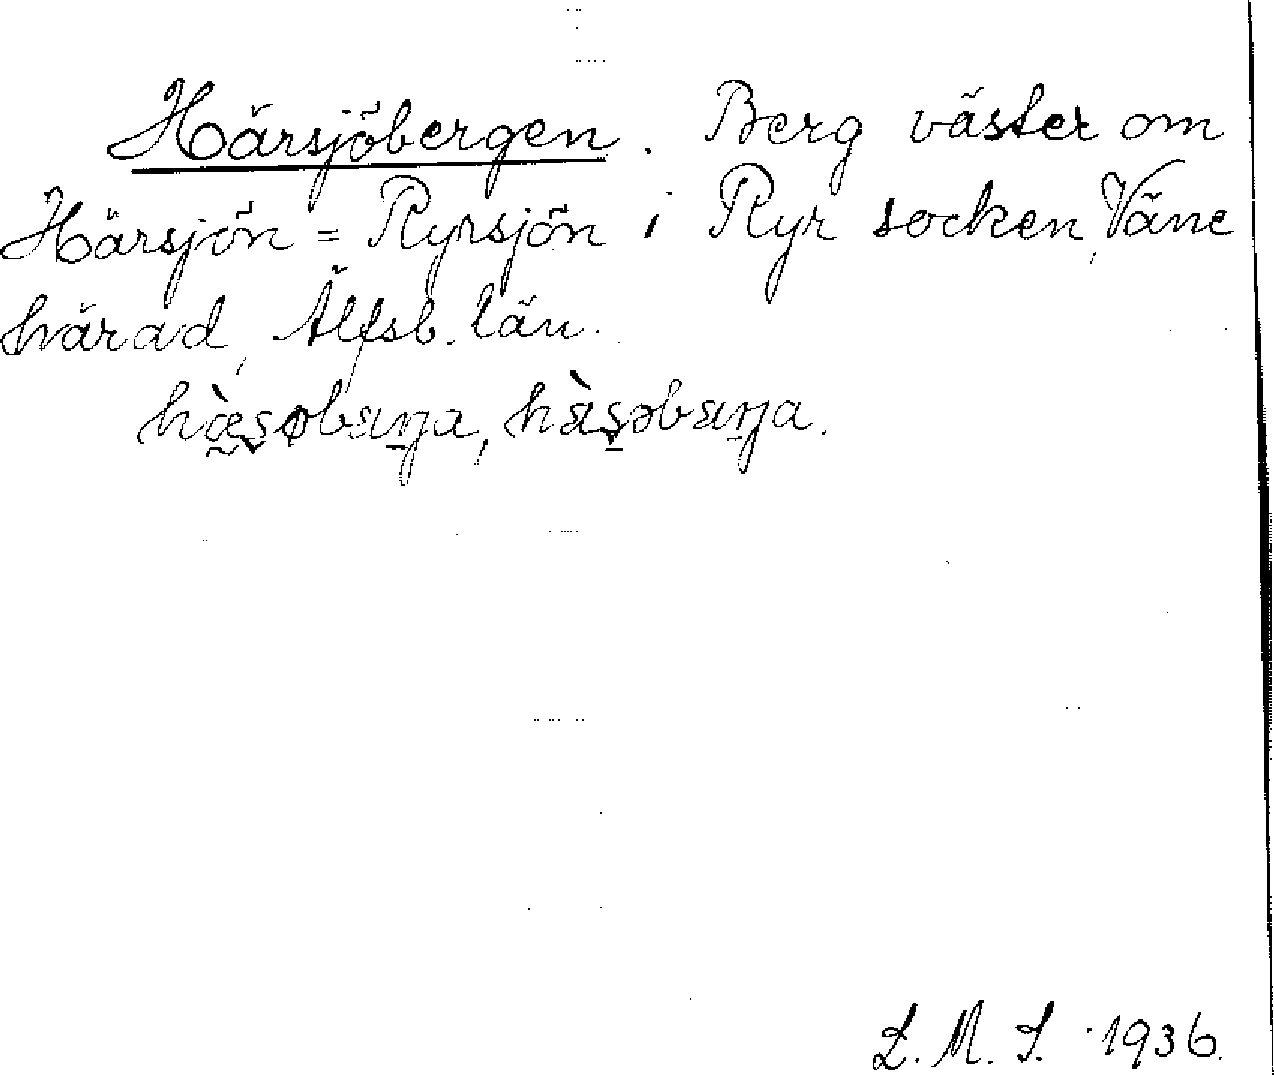 Härsjöbergen. Berg väster om
Härsjön = Ryrsjön i Ryr socken, Väne
härad, Älfsb. län.
hæ̀s̬øbaŋa, hàs̠əbaŋa.
L. M. S. 1936.